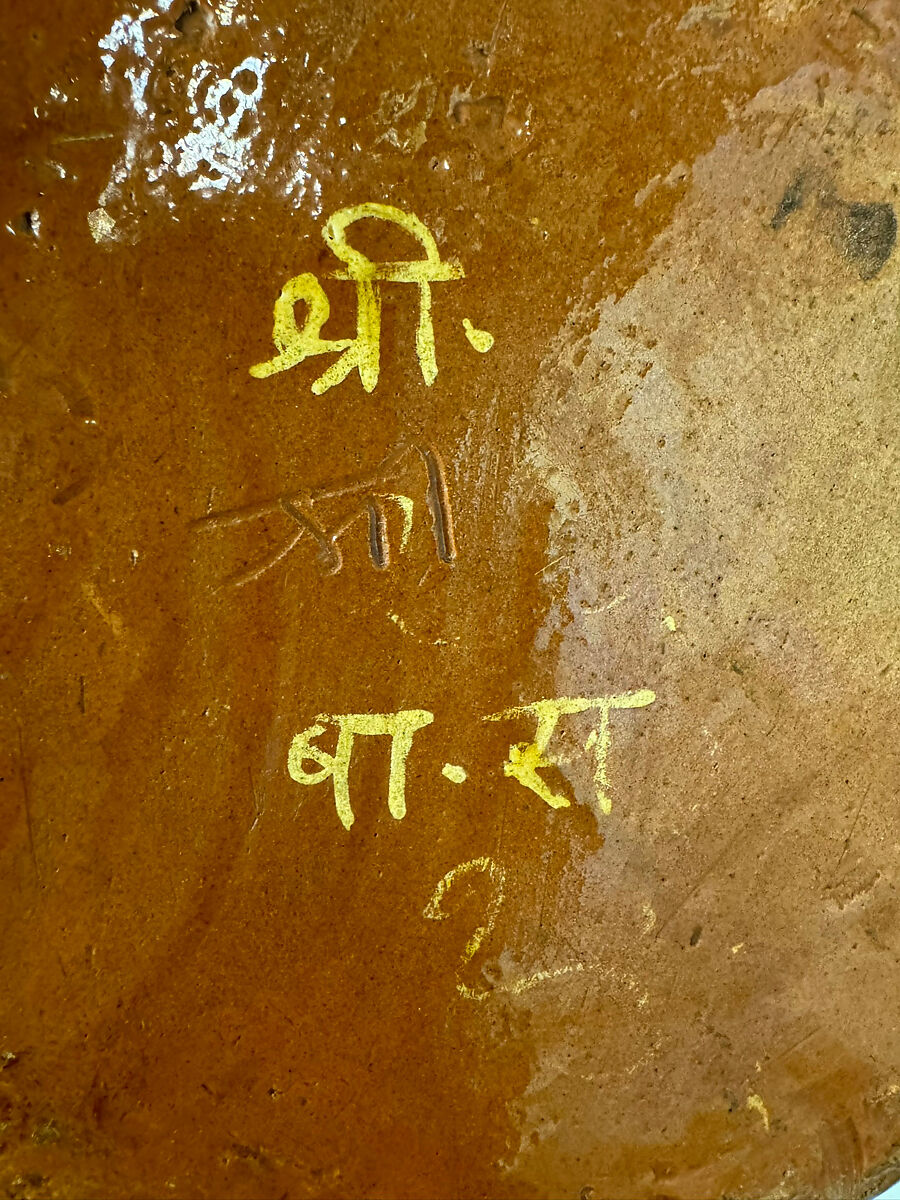 श्री.
बा. स
२